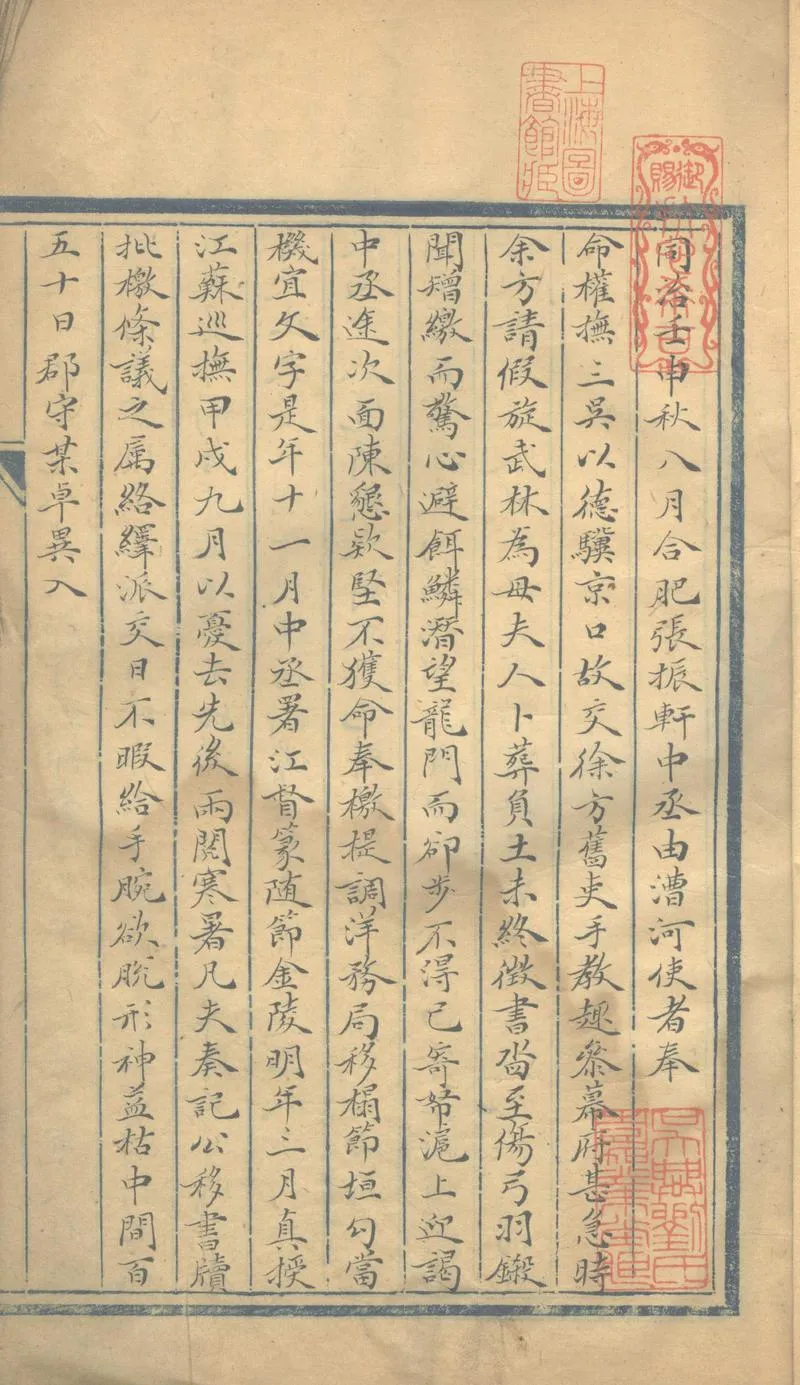 上海圖
書館藏
御賜
同治壬申秋八月合肥張振軒中丞由漕河使者奉
命權撫三吳以德驥京口故交徐方舊吏手教趣參幕府甚急時
余方請假旋武林為母夫人卜葬負土未終徵書沓至傷弓羽鎩
聞矰繳而驚心避餌鱗潛望龍門而卻步不得已寄帑滬上迎謁
中丞途次面陳懇款堅不獲命奉檄提調洋務局移榻節垣勾當
機宜文字是年十一月中丞署江督篆随節金陵明年三月真授
江蘇巡撫甲戌九月以憂去先後兩閱寒暑凡夫奏記公移書牘
批檄條議之属絡繹派交日不暇給手腕欲脫形神益枯中間百
五十日郡守某卓異入
吳興劉氏
嘉業堂